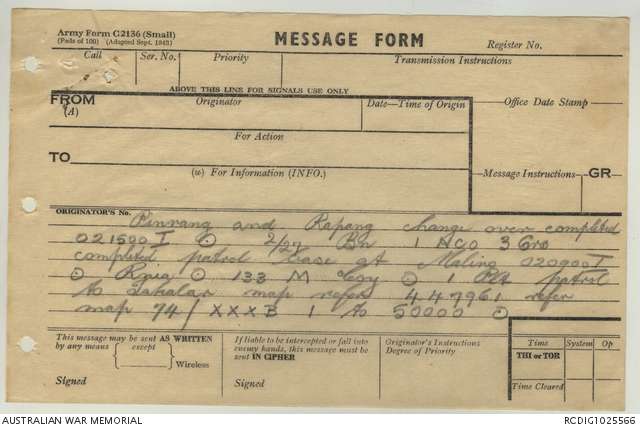 Army Form C2136 (Small)
(Pads of 100) (Adapted Sept. 1943)
MESSAGE FORM
Register No.
Call
Ser. No.
Priority
Transmission Instructions
ABOVE THIS LINE FOR SIGNALS USE ONLY
FROM
(A)
Originator
Date—Time of Origin
Office Date Stamp
For Action
TO
(w) For Information (INFO.)
Message Instructions
GR
ORIGINATOR'S No.
Pinrang and Rapang change over completed
021500 I ⊙ 2/27 Bn 1 3
completed patrol base at Malino 020900 I
⊙ ⊙ 133 M Coy ⊙ 1 Plt patrol
to map refer 447961 refer
map 74/XXXB 1 to 50000 ⊙
This message may be sent AS WRITTEN
by any means except
Wireless
Signed
If liable to be intercepted or fall into
enemy hands, this message must be
sent IN CIPHER
Signed
Originator's Instructions
Degree of Priority
Time
System
Op
THI or TOR
Time Cleared
AUSTRALIAN WAR MEMORIAL
RCDIG1025566